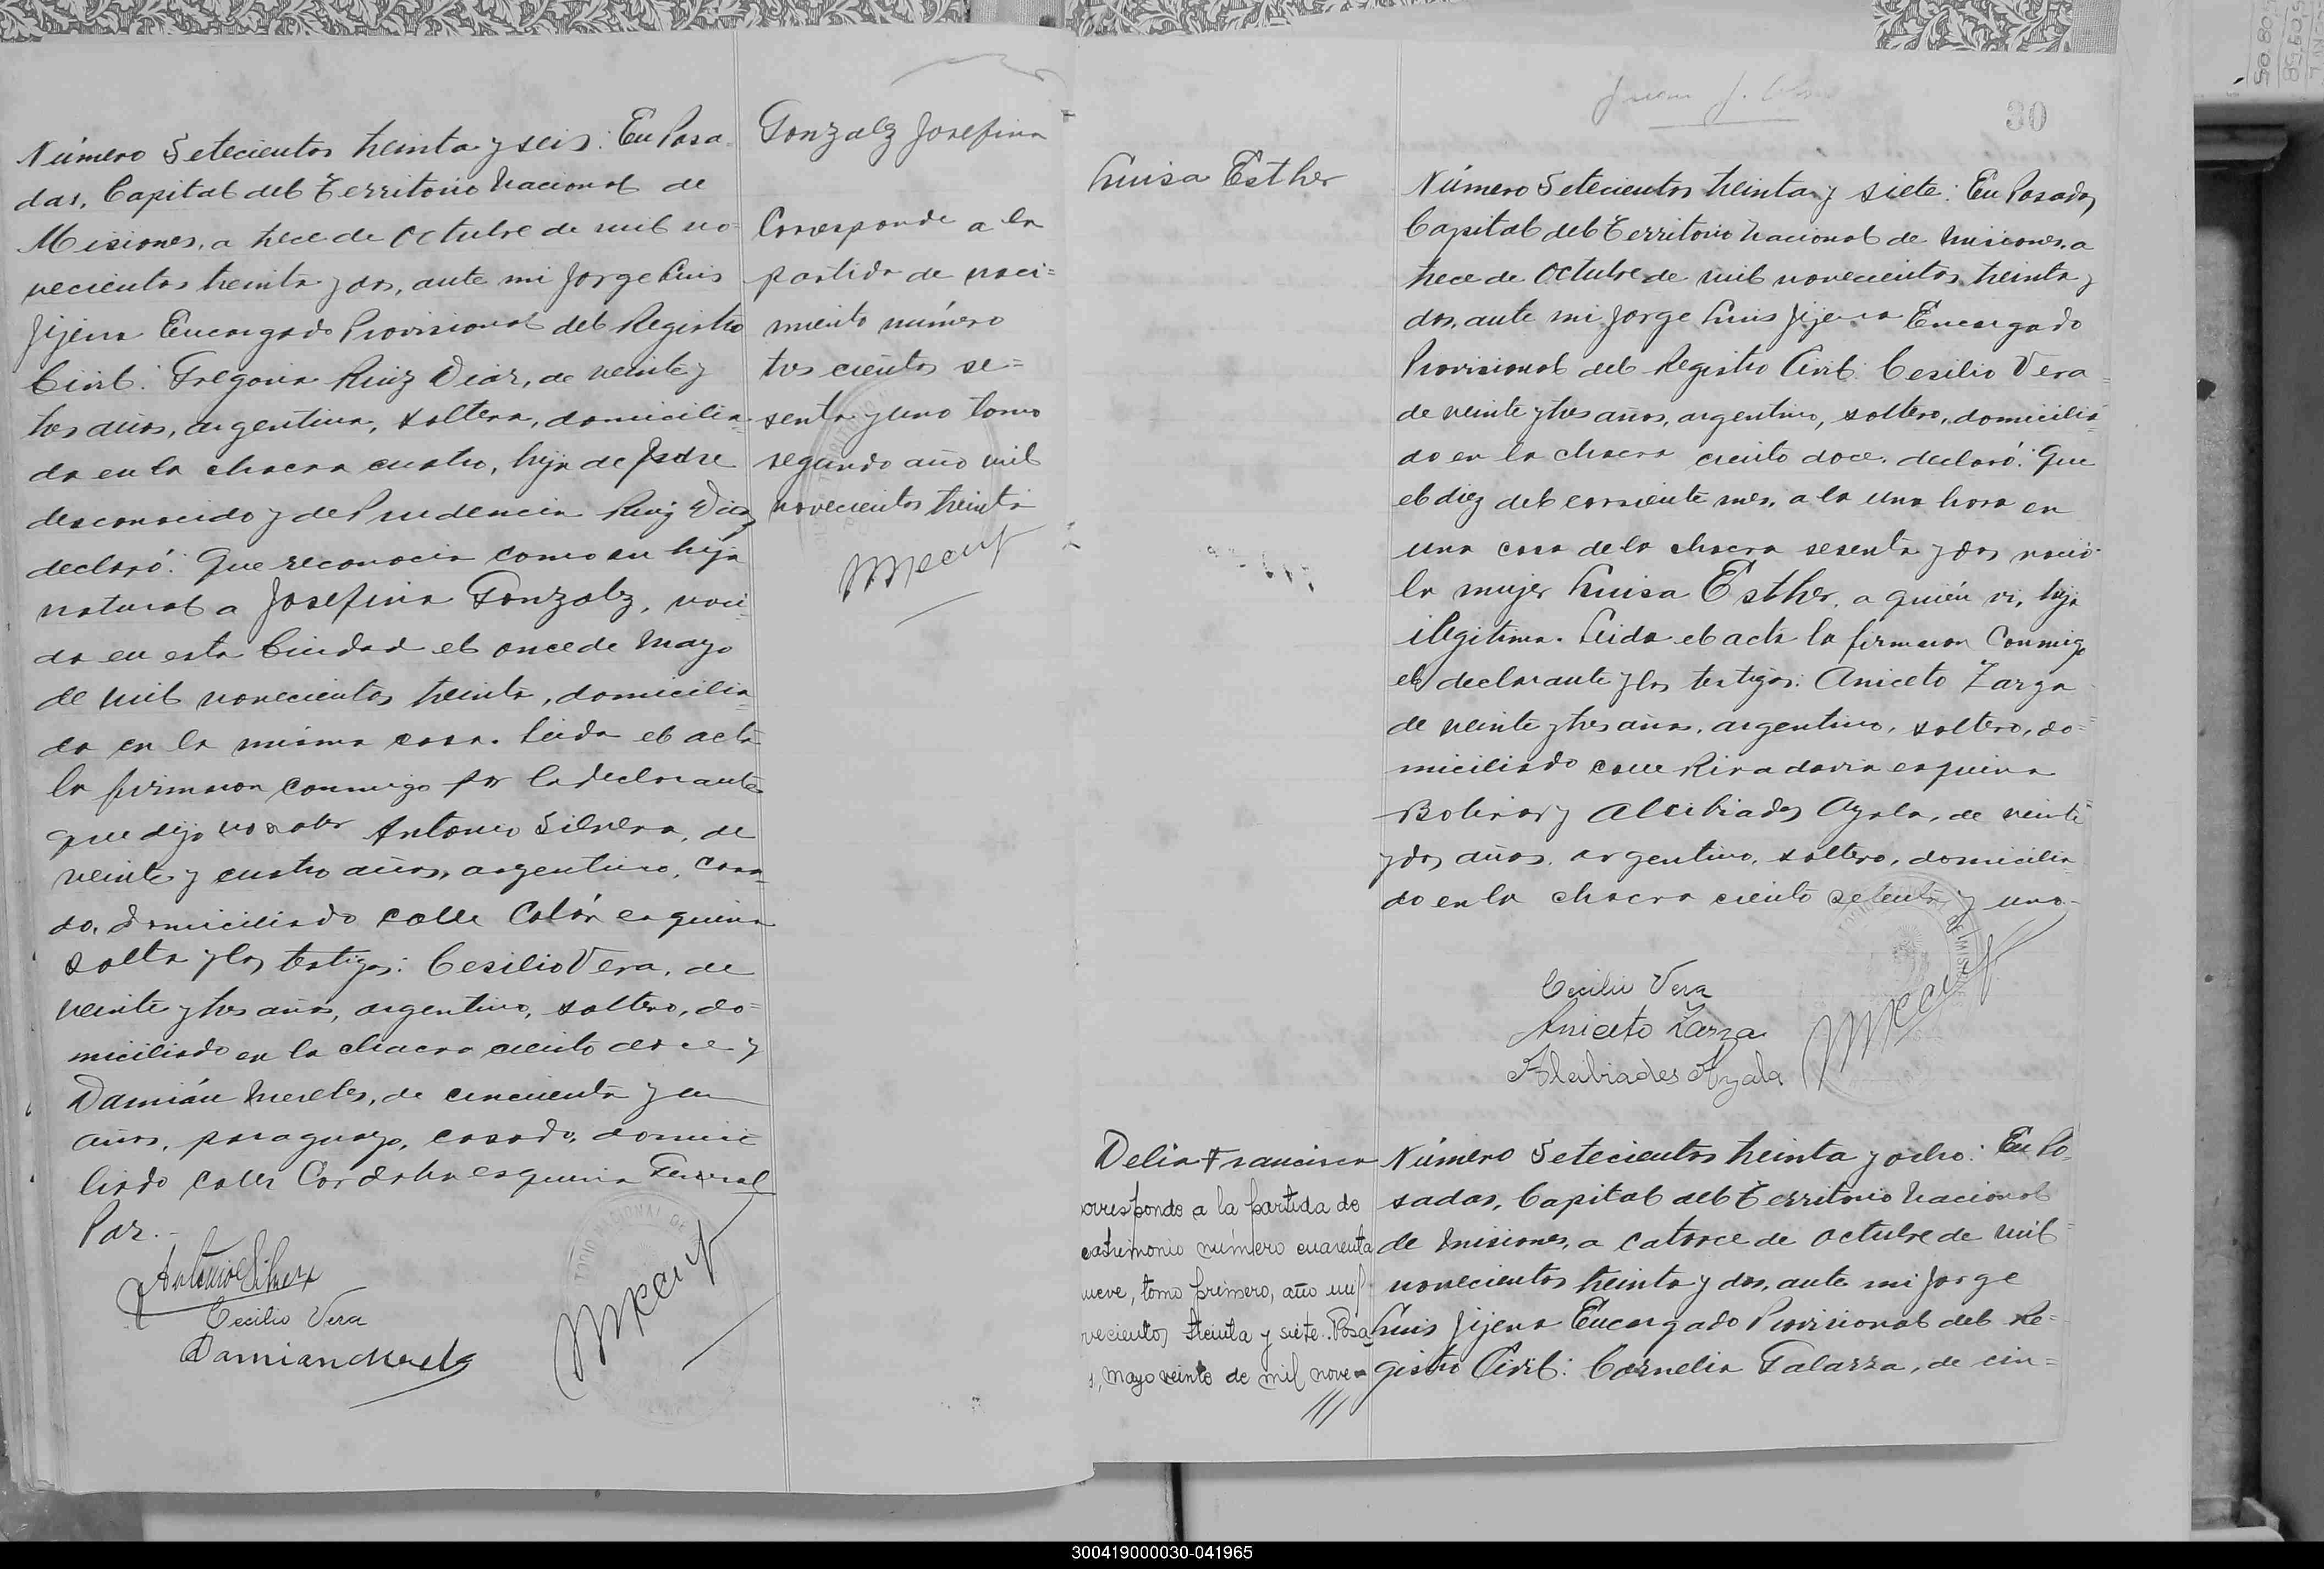 Número Setecientos treinta y seis: En Posa-
das, Capital del Territorio Nacional de
Misiones, a trece de Octubre de mil no-
vecientos treinta y dos, ante mi Jorge Luis
Jijena Encargado Provisional del Registro
Civil: Gregoria Ruiz Diaz, de veinte y
tres años, argentina, soltera, domicilia-
da en la chacra cuatro, hija de padre
desconocido y de Prudencia Ruiz Diaz
declaró: Que reconocia como su hija
natural a Josefina Gonzalez, naci-
da en esta Ciudad el once de Mayo
de mil novecientos treinta, domicilia-
da en la misma casa. Leida el acta
la firmaron conmigo por la declarante
que dijo no saber Antonio Silvera, de
veinte y cuatro años, argentino, casa-
do, domiciliado calle Colón esquina
Salta y los testigos: Cesilio Vera, de
veinte y tres años, argentino, soltero, do=
miciliado en la chacra ciento doce y
Damián Mereles, de cincuenta y un
años, paraguayo, casado, domici-
liado calle Cordoba esquina General
Paz.-
Antonio Silvera
Cecilio Vera
Damian Merels
Gonzalez Josefina
Corresponde a la
partida de naci=
miento número
tres cientos se=
senta y uno tomo
segundo año mil
novecientos treinta
30
Luisa Esther
Número Setecientos treinta y siete: En Posadas,
Capital del Territorio Nacional de Misiones, a
trece de Octubre de mil novecientos treinta y
dos, ante mi Jorge Luis Jijena Encargado
Provisional del Registro Civil: Cesilio Vera
de veinte y tres años, argentino, soltero, domicilia-
do en la chacra ciento doce, declaró: Que
el diez del corriente mes, a la una hora en
una casa de la chacra sesenta y dos nació
la mujer Luisa Esther, a quién vi, hija
ilegitima. Leida el acta la firmaron Conmigo
el declarante y los testigos: Aniceto Zarza
de veinte y tres años, argentino, soltero, do=
miciliado calle Rivadavia esquina
Bolivar y Alcibiades Ayala, de veinte
y dos años, argentino, soltero, domicilia-
do en la chacra ciento setenta y uno-
Cecilio Vera
Aniceto Zarza
Alcibiades Ayala
Delia Francisca
orresponde a la partida de
atrimonio número cuarenta
ueve, tomo primero, año mil
vecientos treinta y siete. Posa
s, mayo veinte de mil nove=
Número Setecientos treinta y ocho: En Po-
sadas, Capital del Territorio Nacional
de Misiones, a catorce de Octubre de mil
novecientos treinta y dos, ante mi Jorge
Luis Jijena Encargado Provisional del Re=
gistro Civil: Cornelia Galarza, de cin=
300419000030-041965